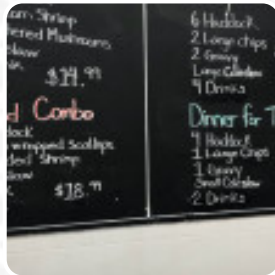 Shrimp
Mushrooms
slaw
$14.99
Combo
wrapped Scallops
Shrimp
$18.99
6 Haddock
2 Large chips
2 Gravy
Large Coleslaw
4 Drinks
Dinner for T
1 Haddock
1 Large Chips
1 Gravy
Small Coleslaw
2 Drinks